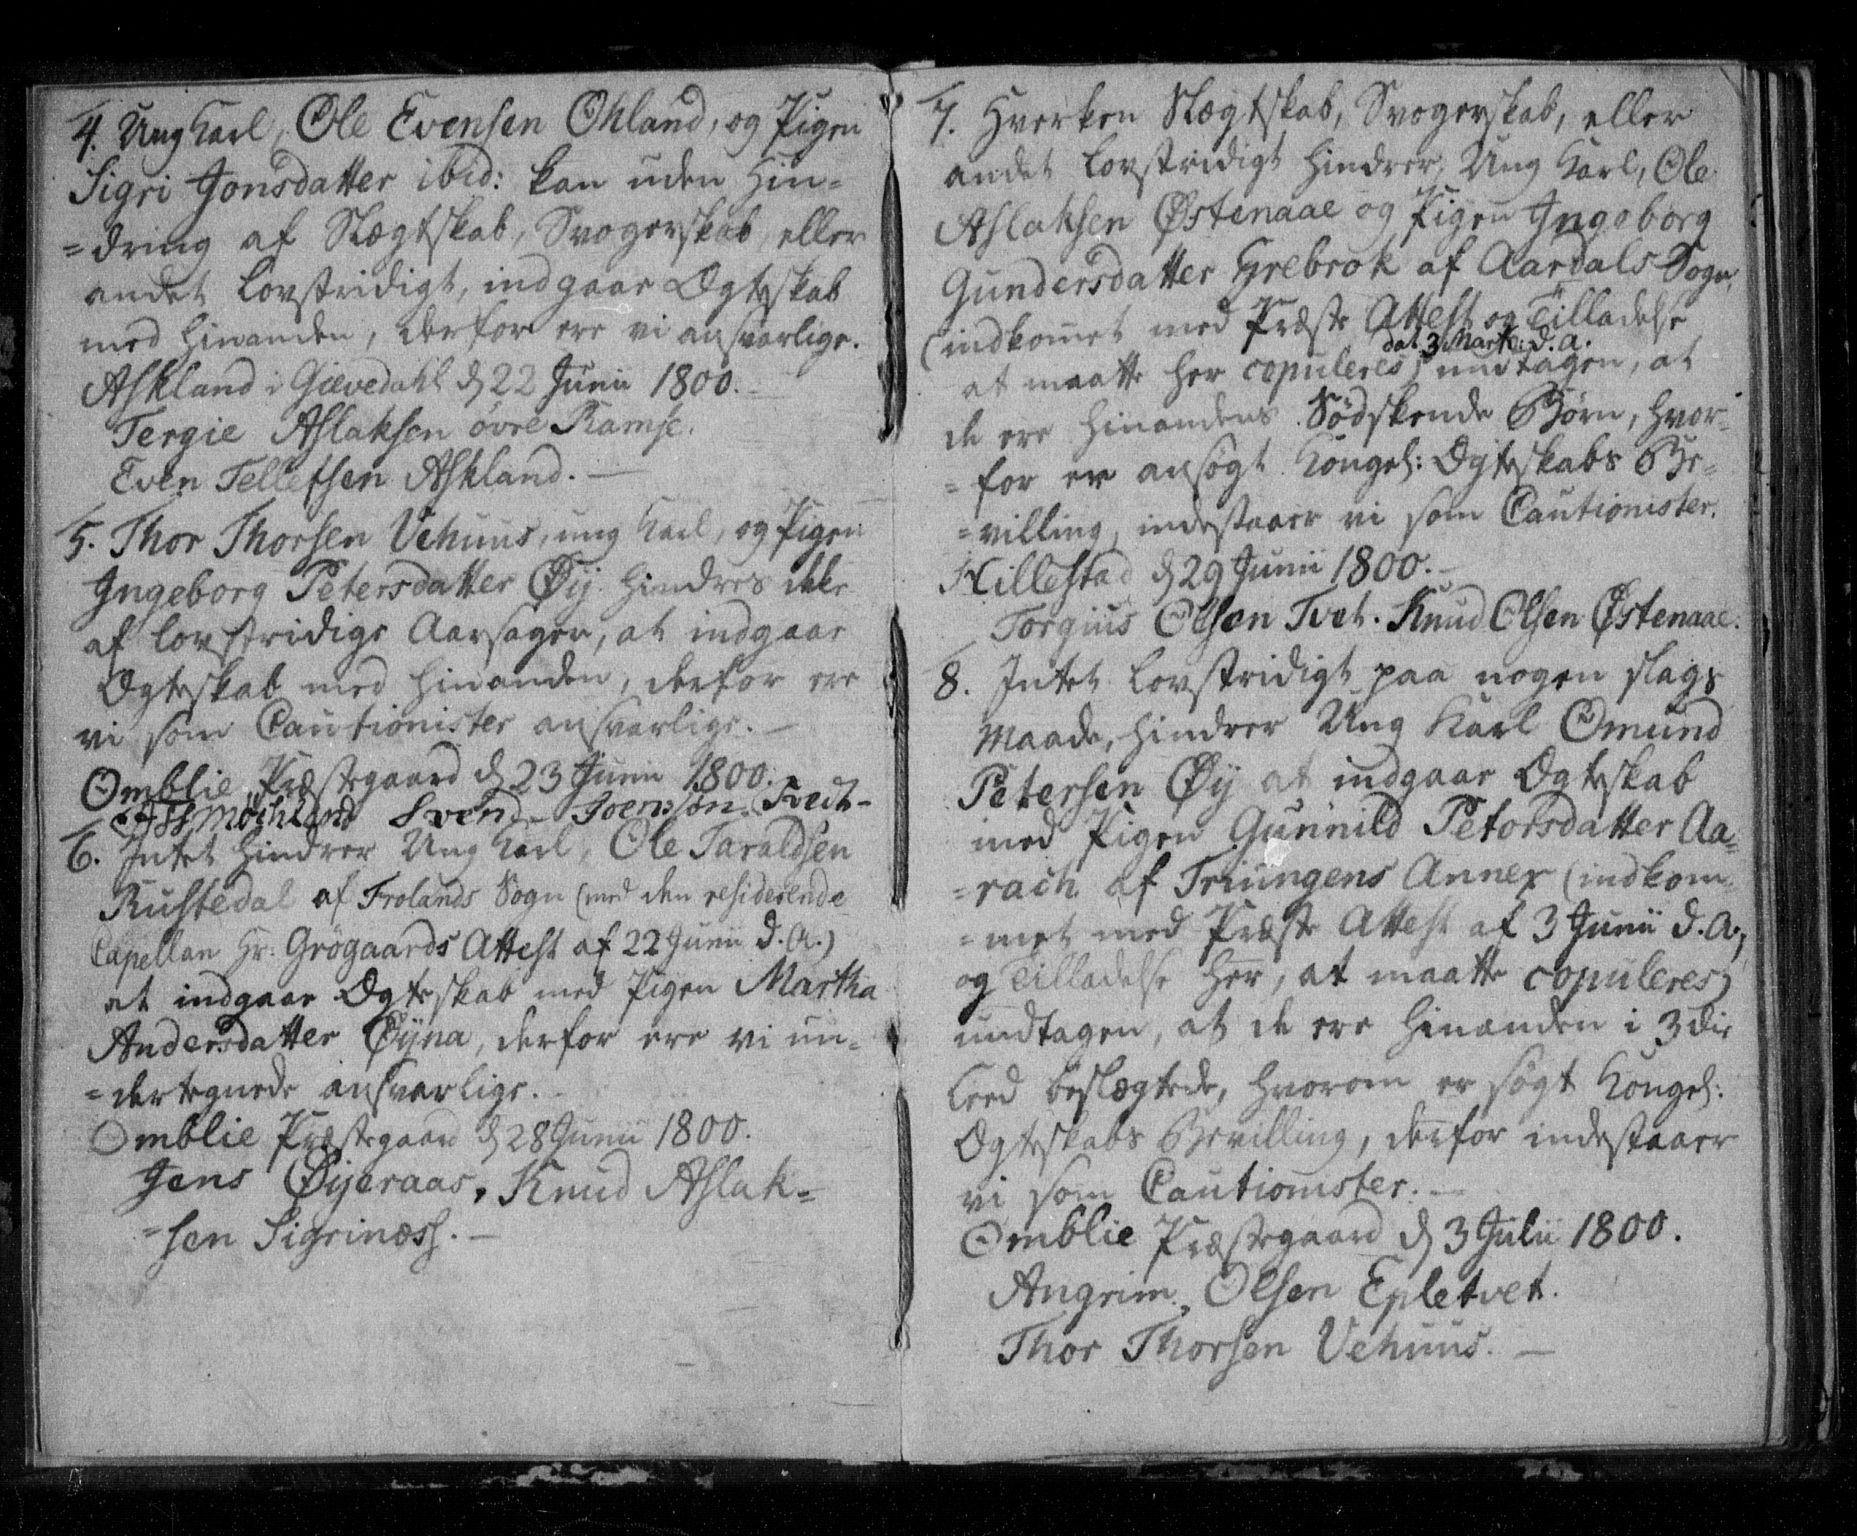 4. Ung Karl, Ole Evensen Ohland, og Pigen
Sigri Jonsdatter ibid: kan uden Hin=
=dring af Slægtskab, Svogerskab, eller
andet Lovstridigt, indgaae Ægteskab
med hinanden, derfor ere vi ansvarlige.
Askland i Giævedahl d 22 Junii 1800.
Tergie Aslaksen övre Ramse.
Even Tellefsen Askland. —
5. Thor Thorsen Vehuus, ung Karl, og Pigen
Ingeborg Petersdatter Øÿ hindres ikke
af lovstridige Aarsager, at indgaae
Ægteskab med hinanden, derfor ere
vi som Cautionister ansvarlige. —
Omblie Præstegaard d 23 Junii 1800.
Svend Svensøn Tveit-
6. Intet hindrer Ung Karl, Ole Taraldsen
Rustedal af Frolands Sogn (med den residerende
Capellan Hr: Grögaards Attest af 22 Junii d. A.)
at indgaae Ægteskab med Pigen Martha
Andersdatter Øÿna, derfor ere vi un=
=dertegnede ansvarlige.
Omblie Præstegaard d 28 Junii 1800.
Jens Øÿeraas, Knud Aslak=
=sen Sigrinæss. —
7. Hverken Slægtskab, Svogerskab, eller
andet Lovstridigt hindrer, Ung Karl, Ole
Aslaksen Østenaae og Pigen Ingeborg
Gundersdatter Grebrok af Aardals Sogn,
(indkomet med Præste Attest og Tilladelse
dat. 3 Marti: d. a.
at maatte her copuleres) undtagen, at
de ere hinandens Södskende Børn, hvor=
=for er ansøgt Kongel: Ægteskabs Be=
=villing, indestaaer vi som Cautionister.
Hillestad d 29 Junii 1800. —
Torgius Olsen Tvet. Knud Olsen Østenaae.
8. Intet Lovstridigt paa nogen slags
Maade, hindrer Ung Karl Omund
Petersen Øÿ at indgaae Ægteskab
med Pigen Gunnild Petersdatter Aa=
=rach af Triungens Annex (indkom=
=met med Præste Attest af 3 Junii d. A.,
og Tilladelse her, at maatte copuleres)
undtagen, at de ere hinanden i 3die
Leed beslægtede, hvorom er søgt Kongel:
Ægteskabs Bevilling, derfor indestaaer
vi som Cautionister. —
Omblie Præstegaard d 3 Julii 1800.
Angrim Olsen Epletvet.
Thor Thorsen Vehuus. —